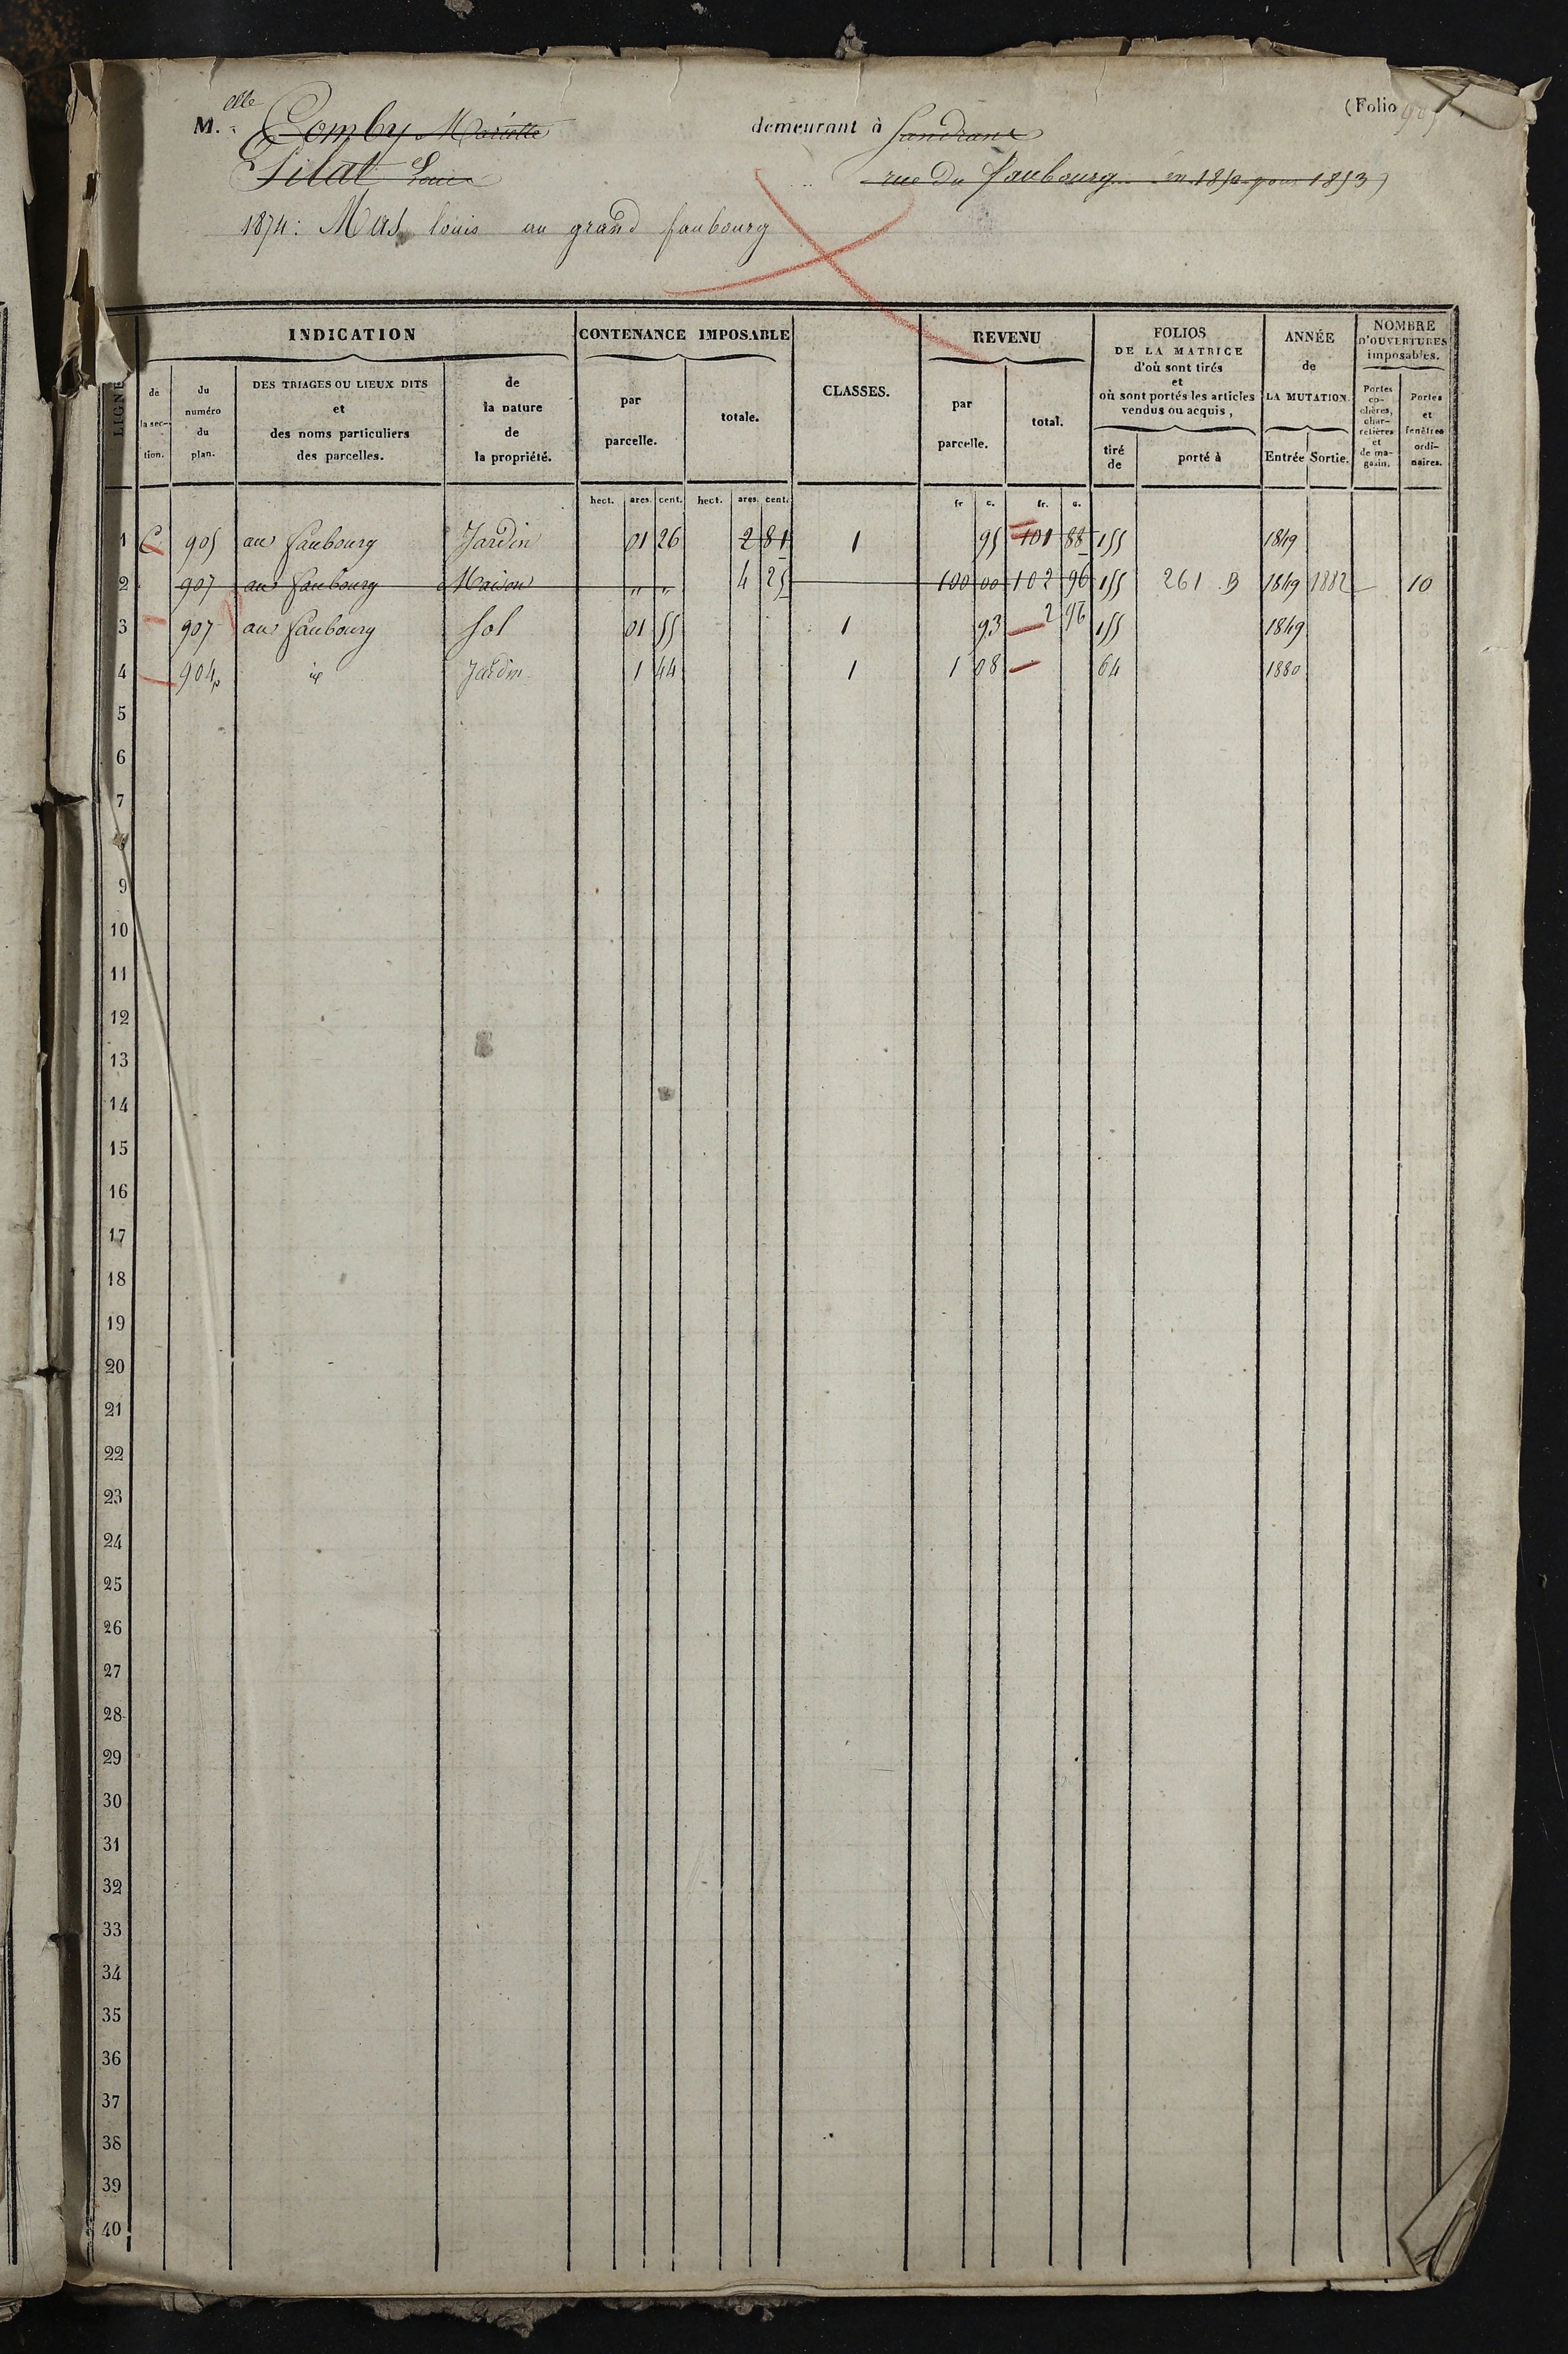 (Folio
M.elle Comby Mariette demeurant à Sandrans
Pilat Louis rue du Faubourg en 1852 pour 1853)
1874: Mas louis au grand faubourg
INDICATION CONTENANCE IMPOSABLE CLASSES. REVENU FOLIOS DE LA MATRICE d'où sont tirés et où sont portés les articles vendus ou acquis, ANNÉE de LA MUTATION. NOMBRE D'OUVERTURES imposables.
LIGNE de la section. du numéro du plan. DES TRIAGES OU LIEUX DITS et des noms particuliers des parcelles. de la nature de la propriété. par parcelle. totale. par parcelle. total. tiré de porté à Entrée Sortie. Portes cochères, charretières et de magasin. Portes et fenêtres ordinaires.
hect. ares. cent. hect. ares. cent. fr c. fr. c.
1 C 905 au faubourg Jardin 01 26 2 81 1 95 101 88 155 1849
2 907 au faubourg Maison " " 4 25 100 00 102 96 155 261 B 1849 1882 10
3 907 au faubourg Sol 01 55 1 93 2 96 155 1849
4 904p id Jardin 1 44 1 1 08 64 1880
5
6
7
9
10
11
12
13
14
15
16
17
18
19
20
21
22
23
24
25
26
27
28
29
30
31
32
33
34
35
36
37
38
39
40